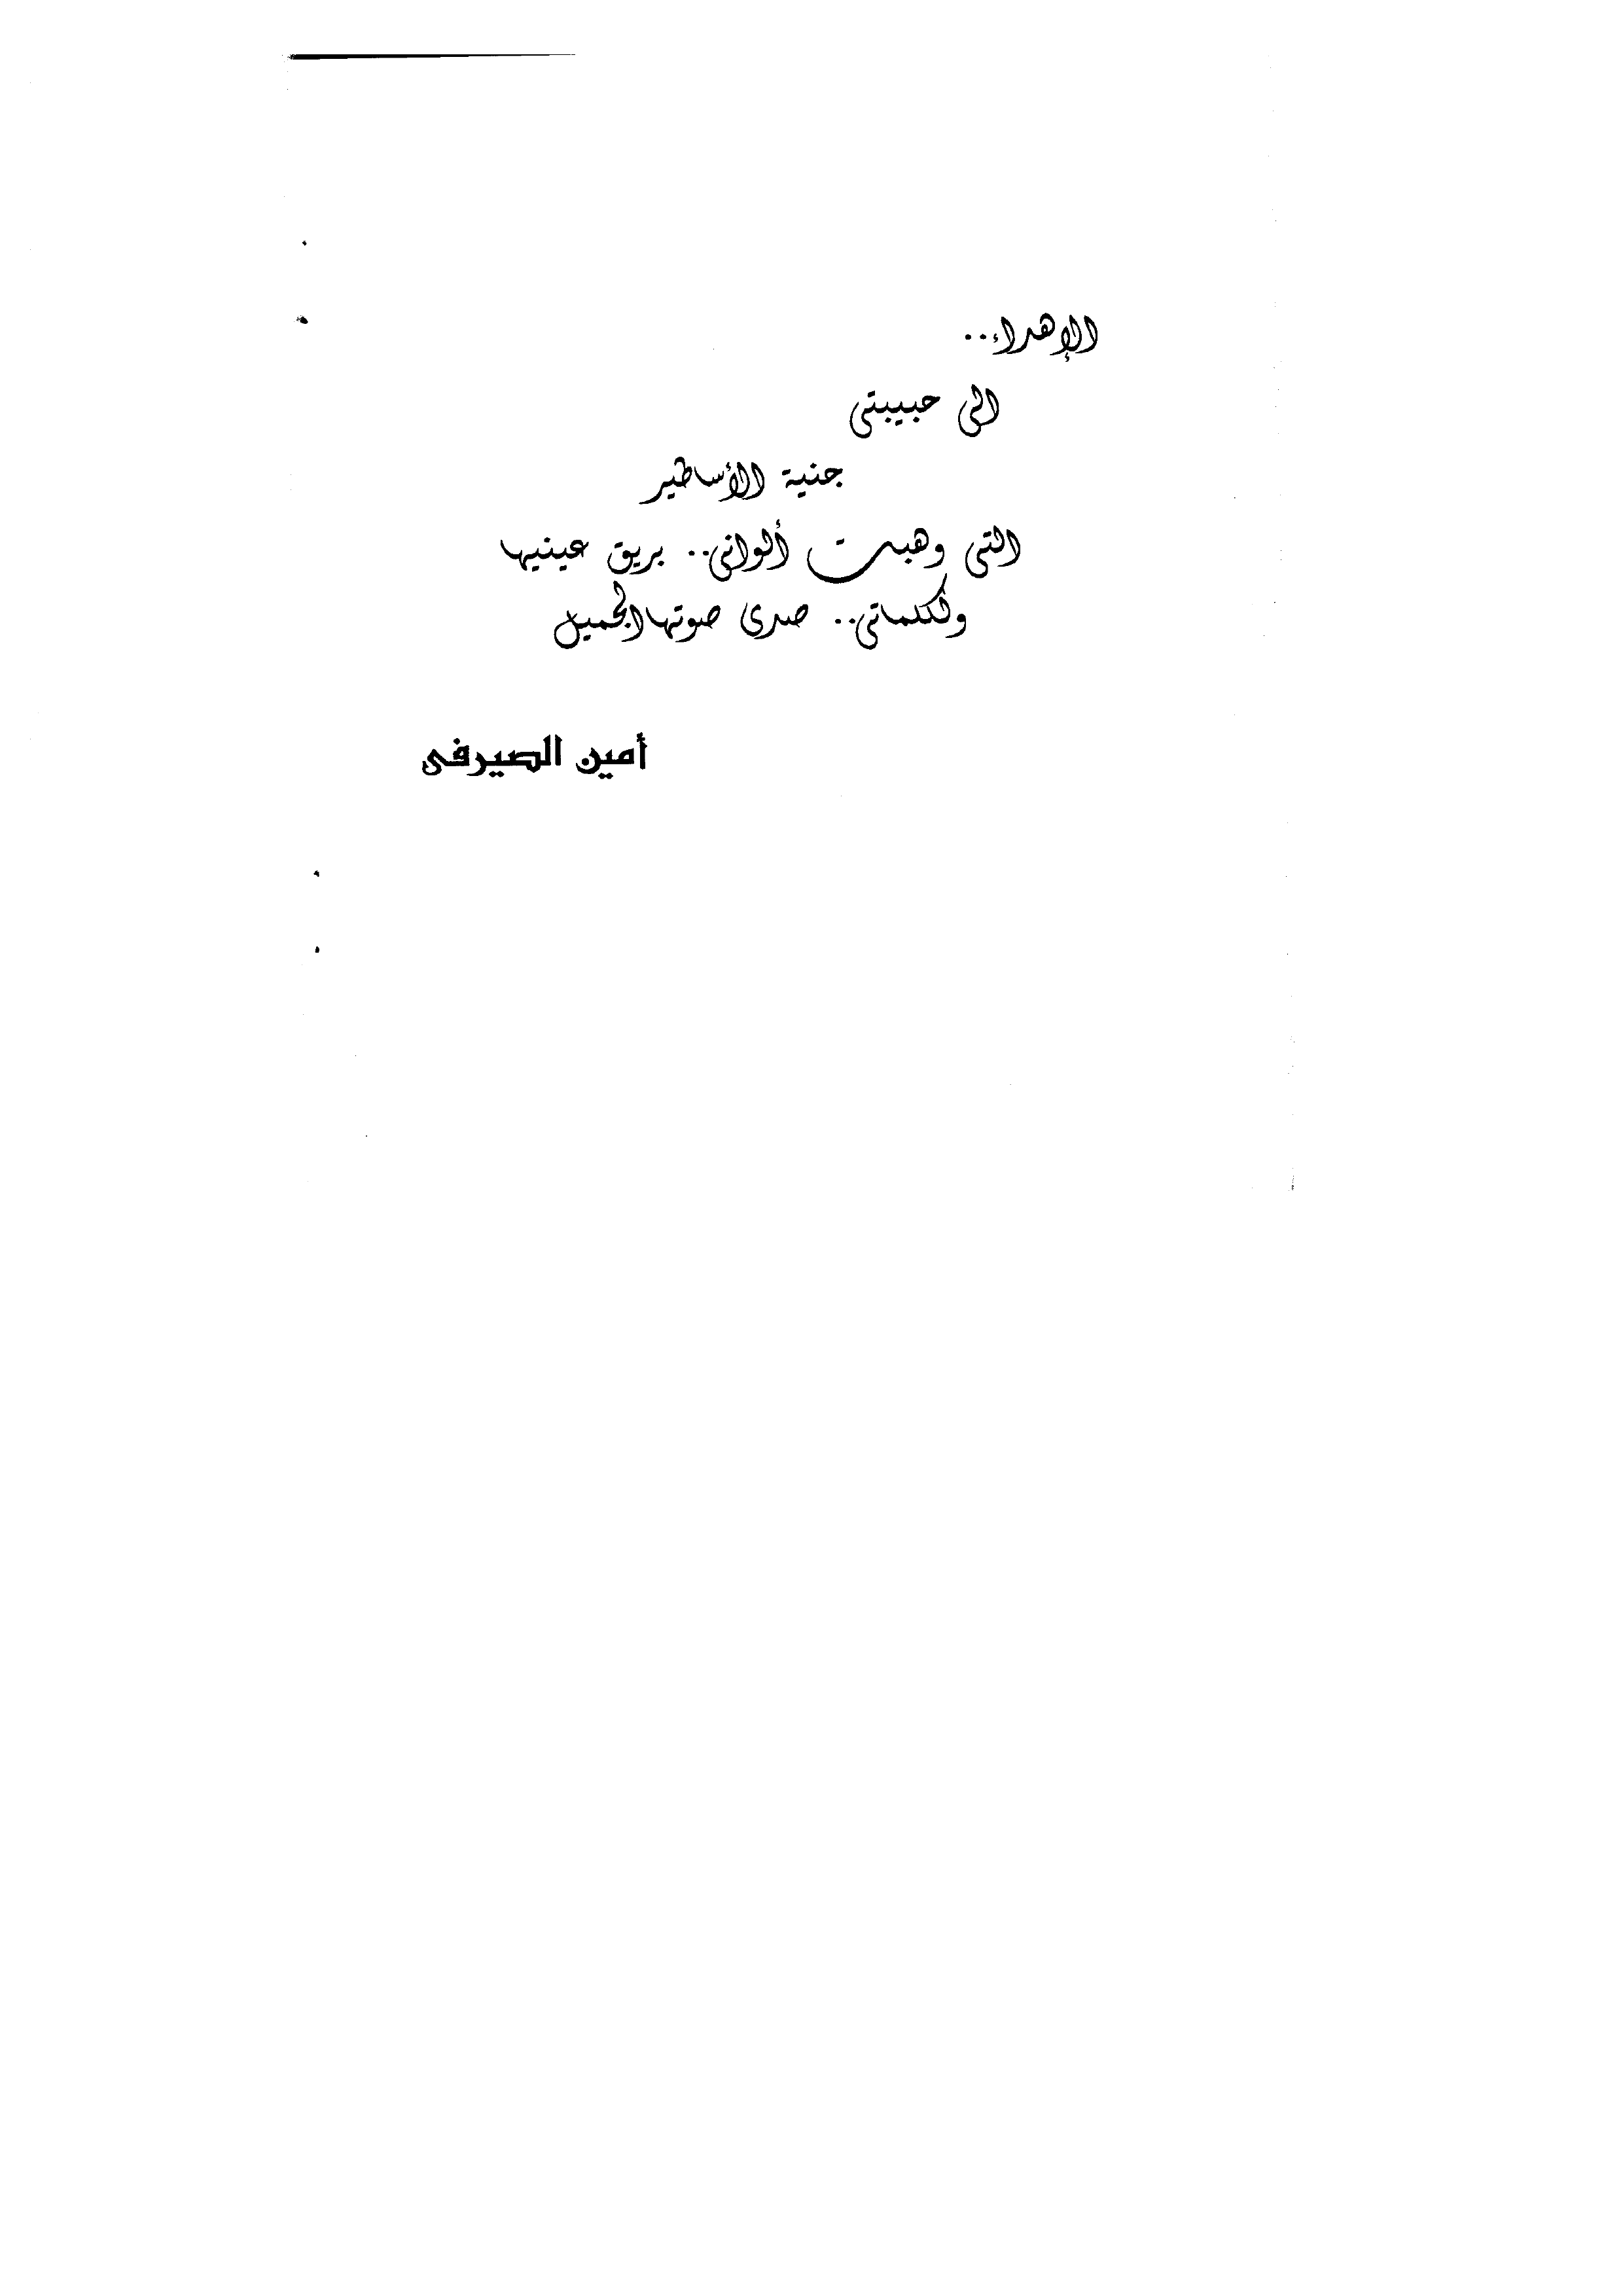 الإهداء..
الى حبيبتى
جنية الأساطير
التى وهبت ألوانى.. بريق عينيها
ولكلماتى.. صدى صوتها الجميل
أمين الصيرفى